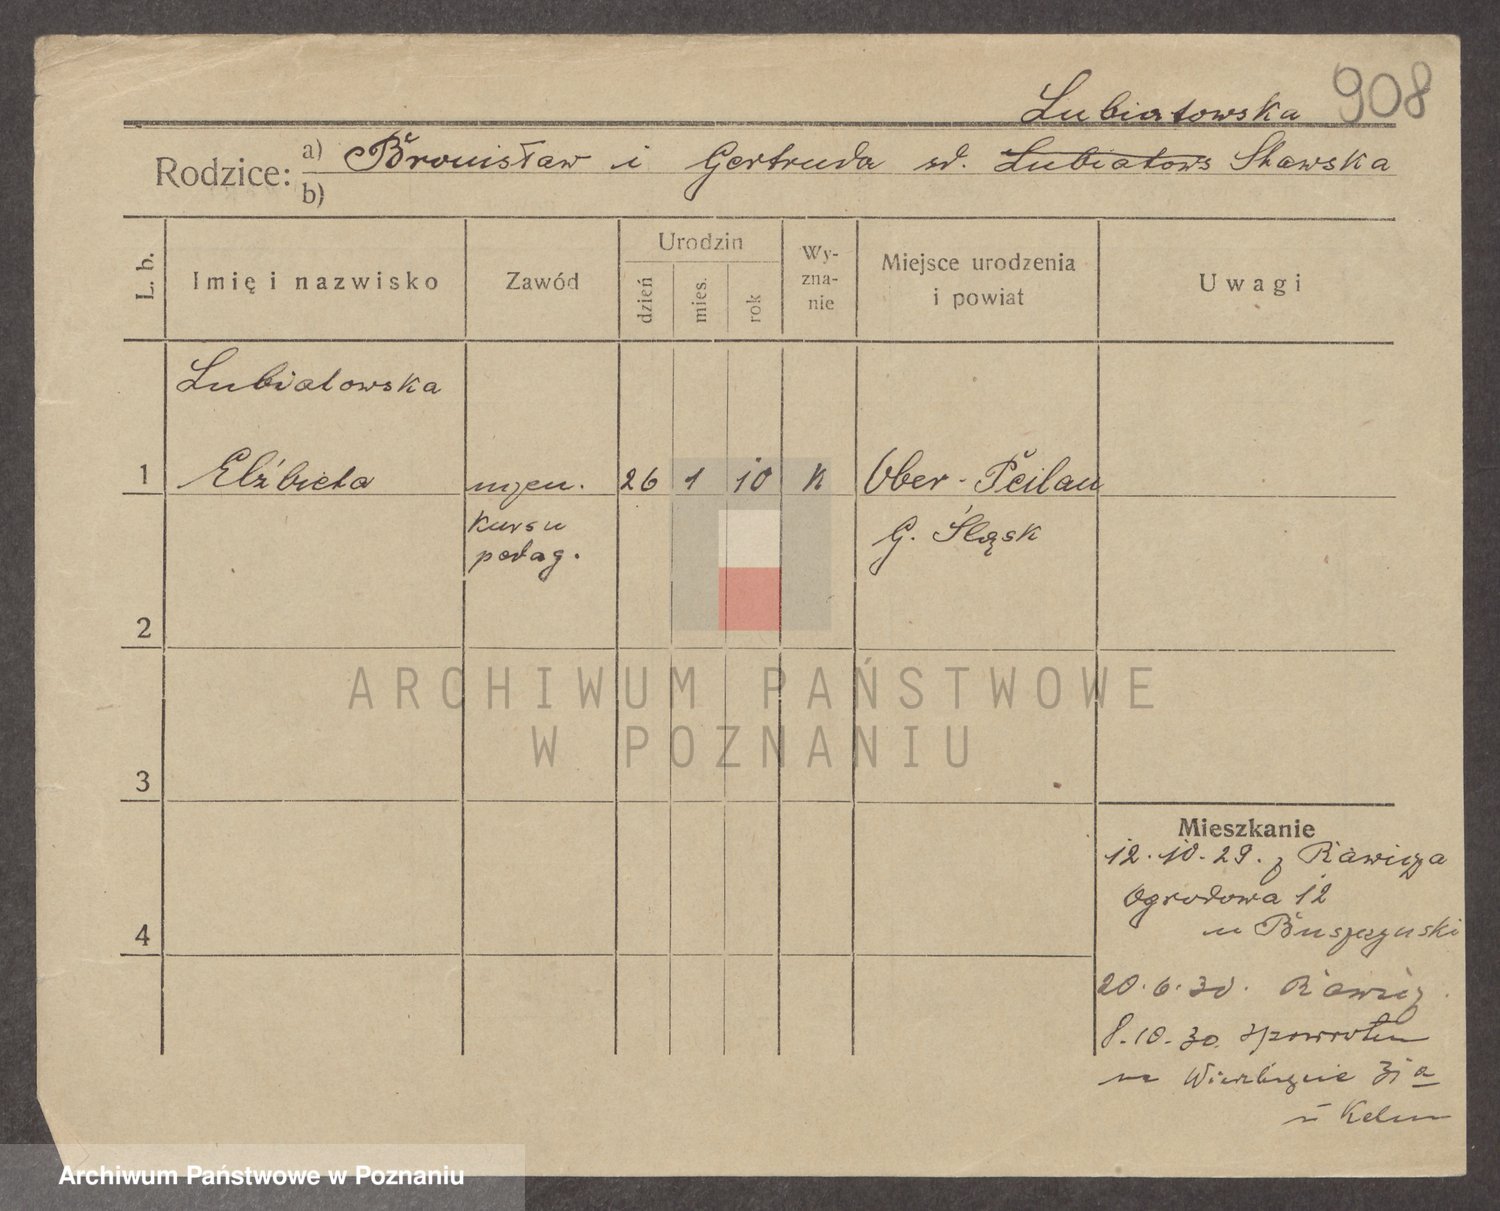 Lubiatowska 908
Rodzice: a) Bronisław i Gertruda zd. Lubiatows Skawska
b)
L. b.
Imię i nazwisko
Zawód
Urodzin
dzień
mies.
rok
Wy-
zna-
nie
Miejsce urodzenia
i powiat
Uwagi
Lubiatowska
1 Elżbieta uczen. 26 1 10 K Ober-Peilau
kursu
pedag.
G. Śląsk
2
ARCHIWUM PAŃSTWOWE
W POZNANIU
3
Mieszkanie
12.10.29. z Rawicza
Ogrodowa 12
u Buszczyński
4
20.6.30. Rawicz
8.10.30 zpowrotem
na Wierzbięcie 31a
u
Archiwum Państwowe w Poznaniu